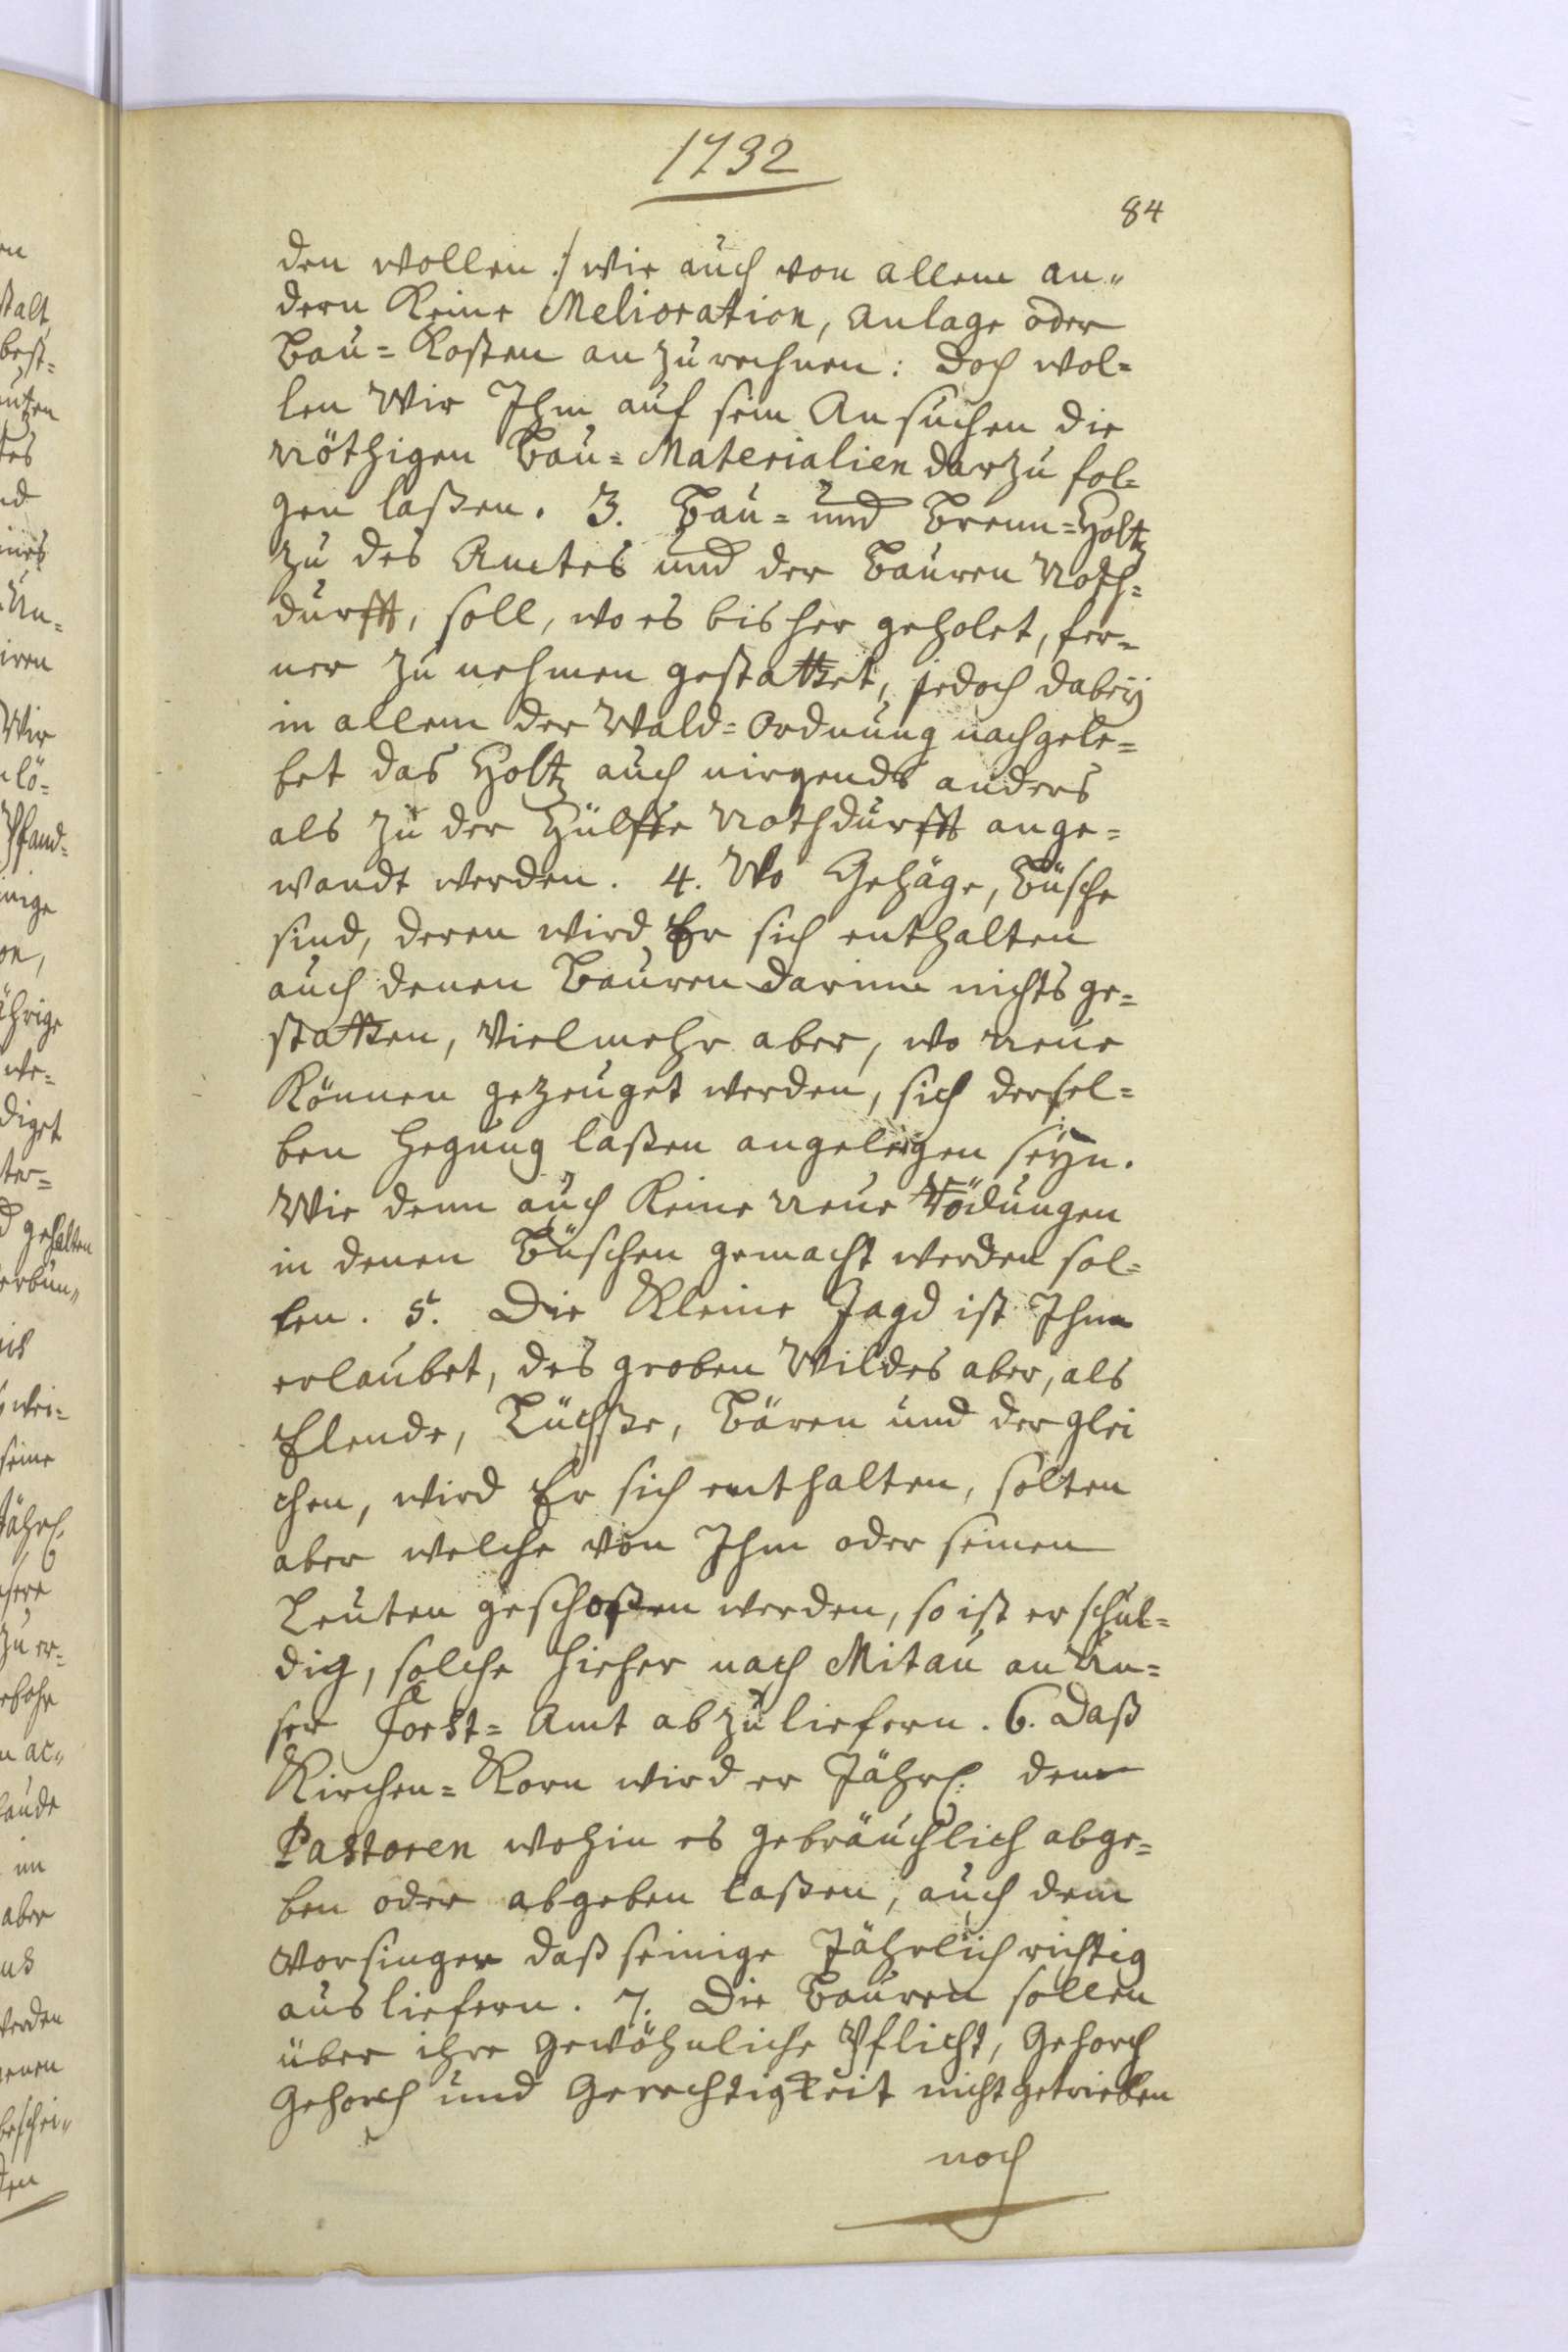 1732
84
den wollen :/ wie auch von allem an„
dern Keine Melioration, Anlage oder
Bau=Kosten an zu rechnen: Doch wol=
len Wir Ihm auf sein Ansuchen die
nöthigen Bau=Materialien darzu fol=
gen laßen. 3. Bau= und Brenn=Holtz
zu des Amtes und der Bauren Noth=
durfft, soll, wo es bis her geholet, fer=
ner zu nehmen gestattet, jedoch dabeÿ
in allem der Wald=Ordnung nachgele=
bet das Holtz auch nirgends anders
als zu der Hülffe Nothdurfft ange=
wandt werden. 4. Wo Gehäge, Büsche
sind, deren wird Er sich enthalten
auch denen Bauren darinn nichts ge=
statten, Vielmehr aber, wo neue
Können gezeuget werden, sich dersel=
ben Hegung laßen angelegen seÿn.
Wie denn auch Keine neue Rödungen
in denen Büschen gemacht werden sol=
len. 5. Die Kleine Jagd ist Ihm
erlaubet, des groben Wildes aber, als
Elende, Lüchße, Bären und der glei
chen, wird Er sich enthalten, solten
aber welche von Ihm oder seinen
Leuten geschoßen werden, so ist er schul=
dig, solche hieher nach Mitau an Un=
ser Forst=Amt abzuliefern. 6. Daß
Kirchen=Korn wird er Jährl: dem
Pastoren wohin es gebräuchlich abge=
ben oder abgeben laßen, auch dem
Vorsinger daß seinige Jährlich richtig
ausliefern. 7. Die Bauren sollen
über ihre gewöhnliche Pflicht, Gehorch
Gehorch und Gerechtigkeit nicht getrieben
noch